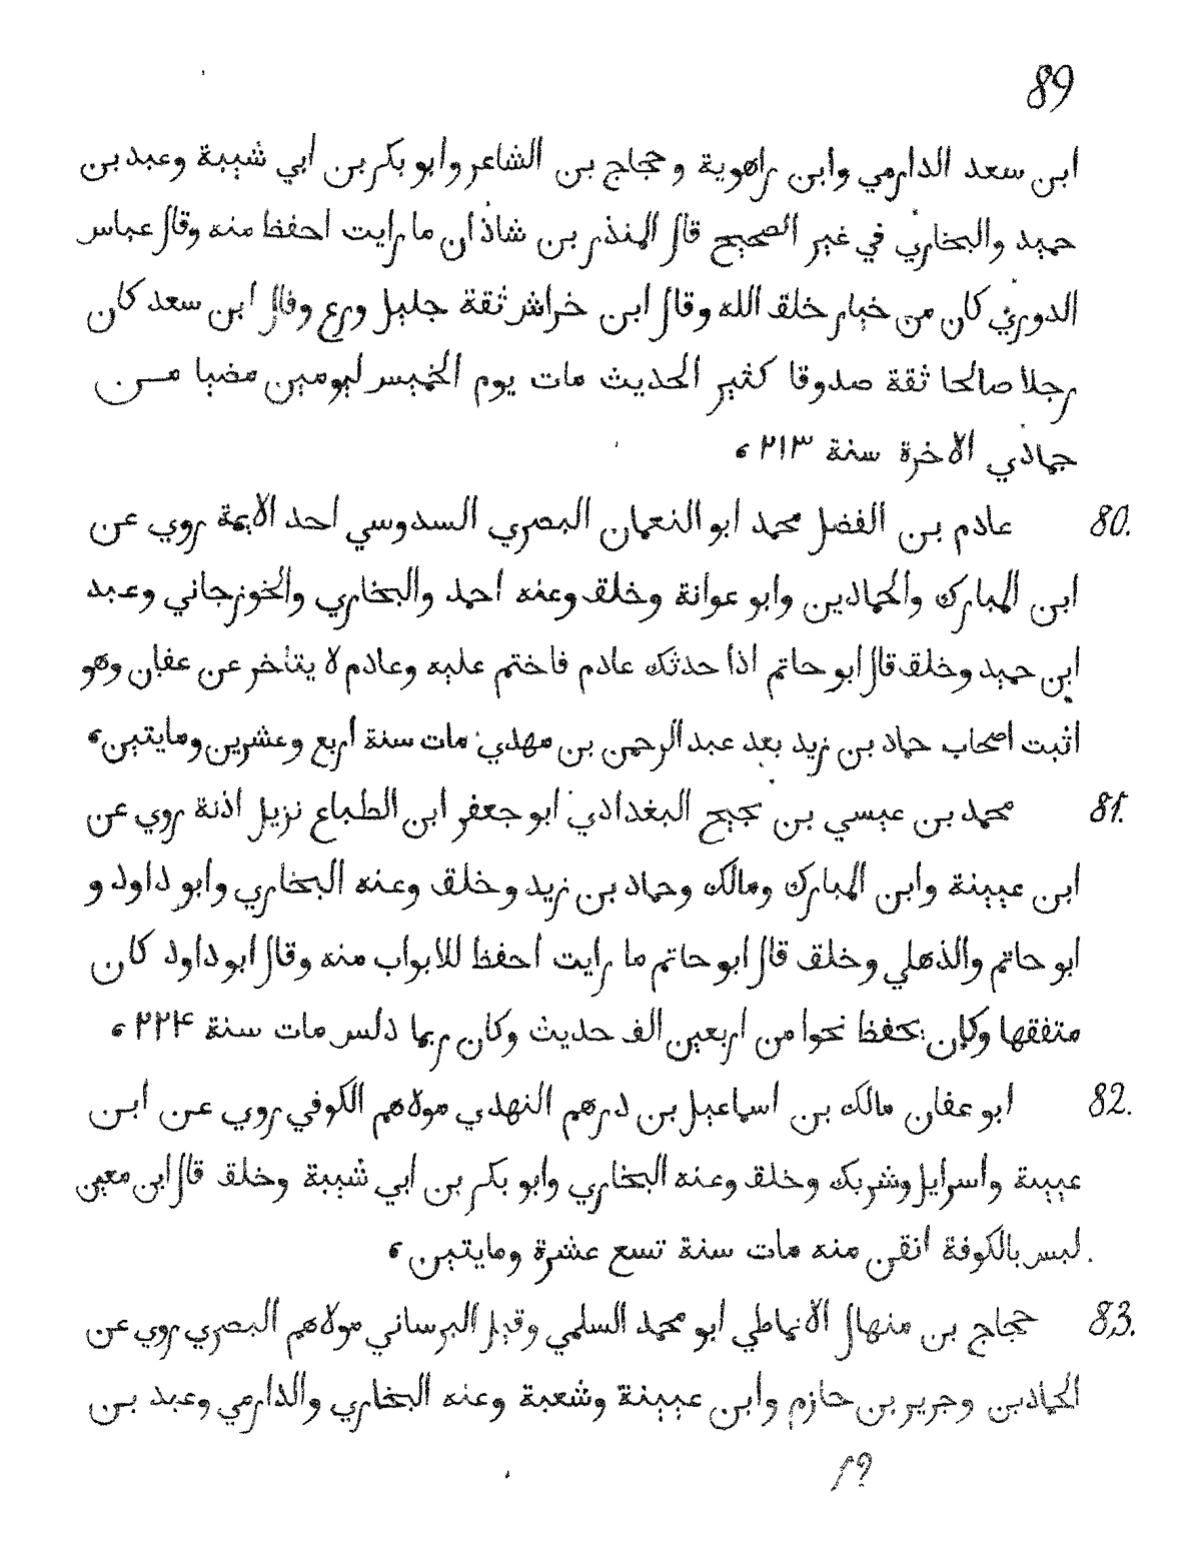 89
ابن سعد الدارمي وابن راهوية وحجاج بن الشاعر وابو بكر بن ابي شيبة وعبد بن
حميد والبخاري في غير الصحيح قال المنذر بن شاذان ما رايت احفظ منه وقال عباس
الدوري كان من خيار خلق الله وقال ابن خراش ثقة جليل ورع وقال ابن سعد كان
رجلا صالحا ثقة صدوقا كثير الحديث مات يوم الخميس ليومين مضيا من
جمادي الاخرة سنة ٢١٣ ،
80. عادم بن الفضل محمد ابو النعمان البصري السدوسي احد الايمة روي عن
ابن المبارك والحمادين وابو عوانة وخلق وعنه احمد والبخاري والخوزجاني وعبد
ابن حميد وخلق قال ابو حاتم اذا حدثك عادم فاختم عليه وعادم لا يتأخر عن عفان وهو
اثبت اصحاب حماد بن زيد بعد عبد الرحمن بن مهدي مات سنة اربع وعشرين ومايتين ،
81. محمد بن عيسي بن نجيح البغدادي ابو جعفر ابن الطباع نزيل اذنة روي عن
ابن عيينة وابن المبارك ومالك وحماد بن زيد وخلق وعنه البخاري وابو داود و
ابو حاتم والذهلي وخلق قال ابو حاتم ما رايت احفظ للابواب منه وقال ابو داود كان
متفقها وكان يحفظ نحوا من اربعين الف حديث وكان ربما دلس مات سنة ٢٢٤ ،
82. ابو عفان مالك بن اسماعيل بن درهم النهدي مولاهم الكوفي روي عن ابن
عيينة واسرايل وشريك وخلق وعنه البخاري وابو بكر بن ابي شيبة وخلق قال ابن معين
ليس بالكوفة اتقى منه مات سنة تسع عشرة ومايتين ،
83. حجاج بن منهال الانماطي ابو محمد السلمي وقيل البرساني مولاهم البصري روي عن
الحمادين وجرير بن حازم وابن عيينة وشعبة وعنه البخاري والدارمي وعبد بن